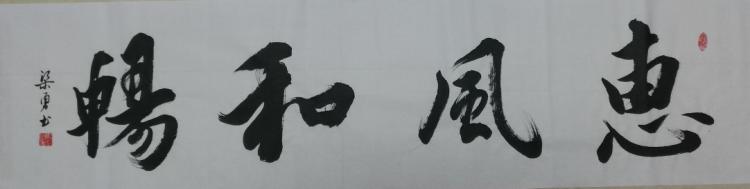 惠風和暢
梁勇书